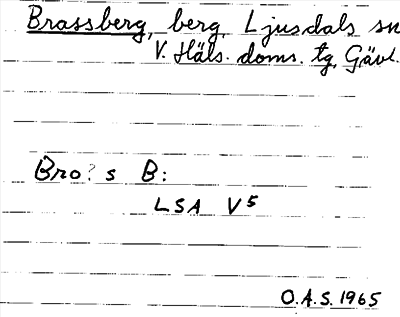 Brassberg, berg, Ljusdals sn
V. Häls. doms. tg, Gävl.
Bro? s B:
LSA V5
O.A.S. 1965